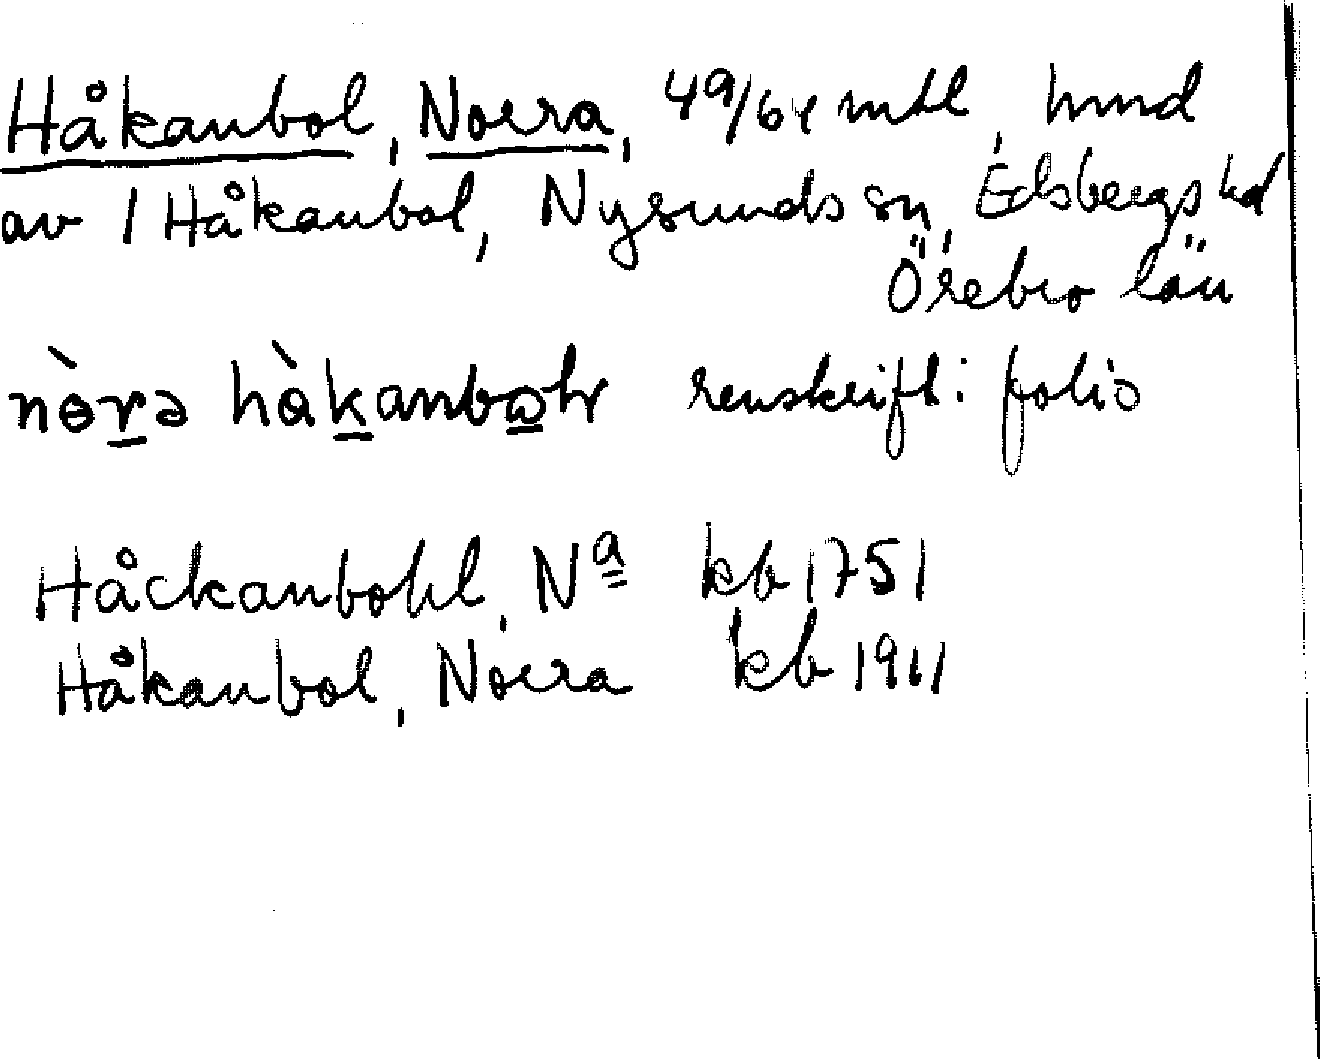 Håkanbol, Norra, 49/64 mtl, hmd
av 1 Håkanbol, Nysunds sn, Edsbergs hd
Örebro län
nòrə hàkanbωlr renskrift: folio
Håckanbohl, Na kb 1751
Håkanbol, Norra kb 1911